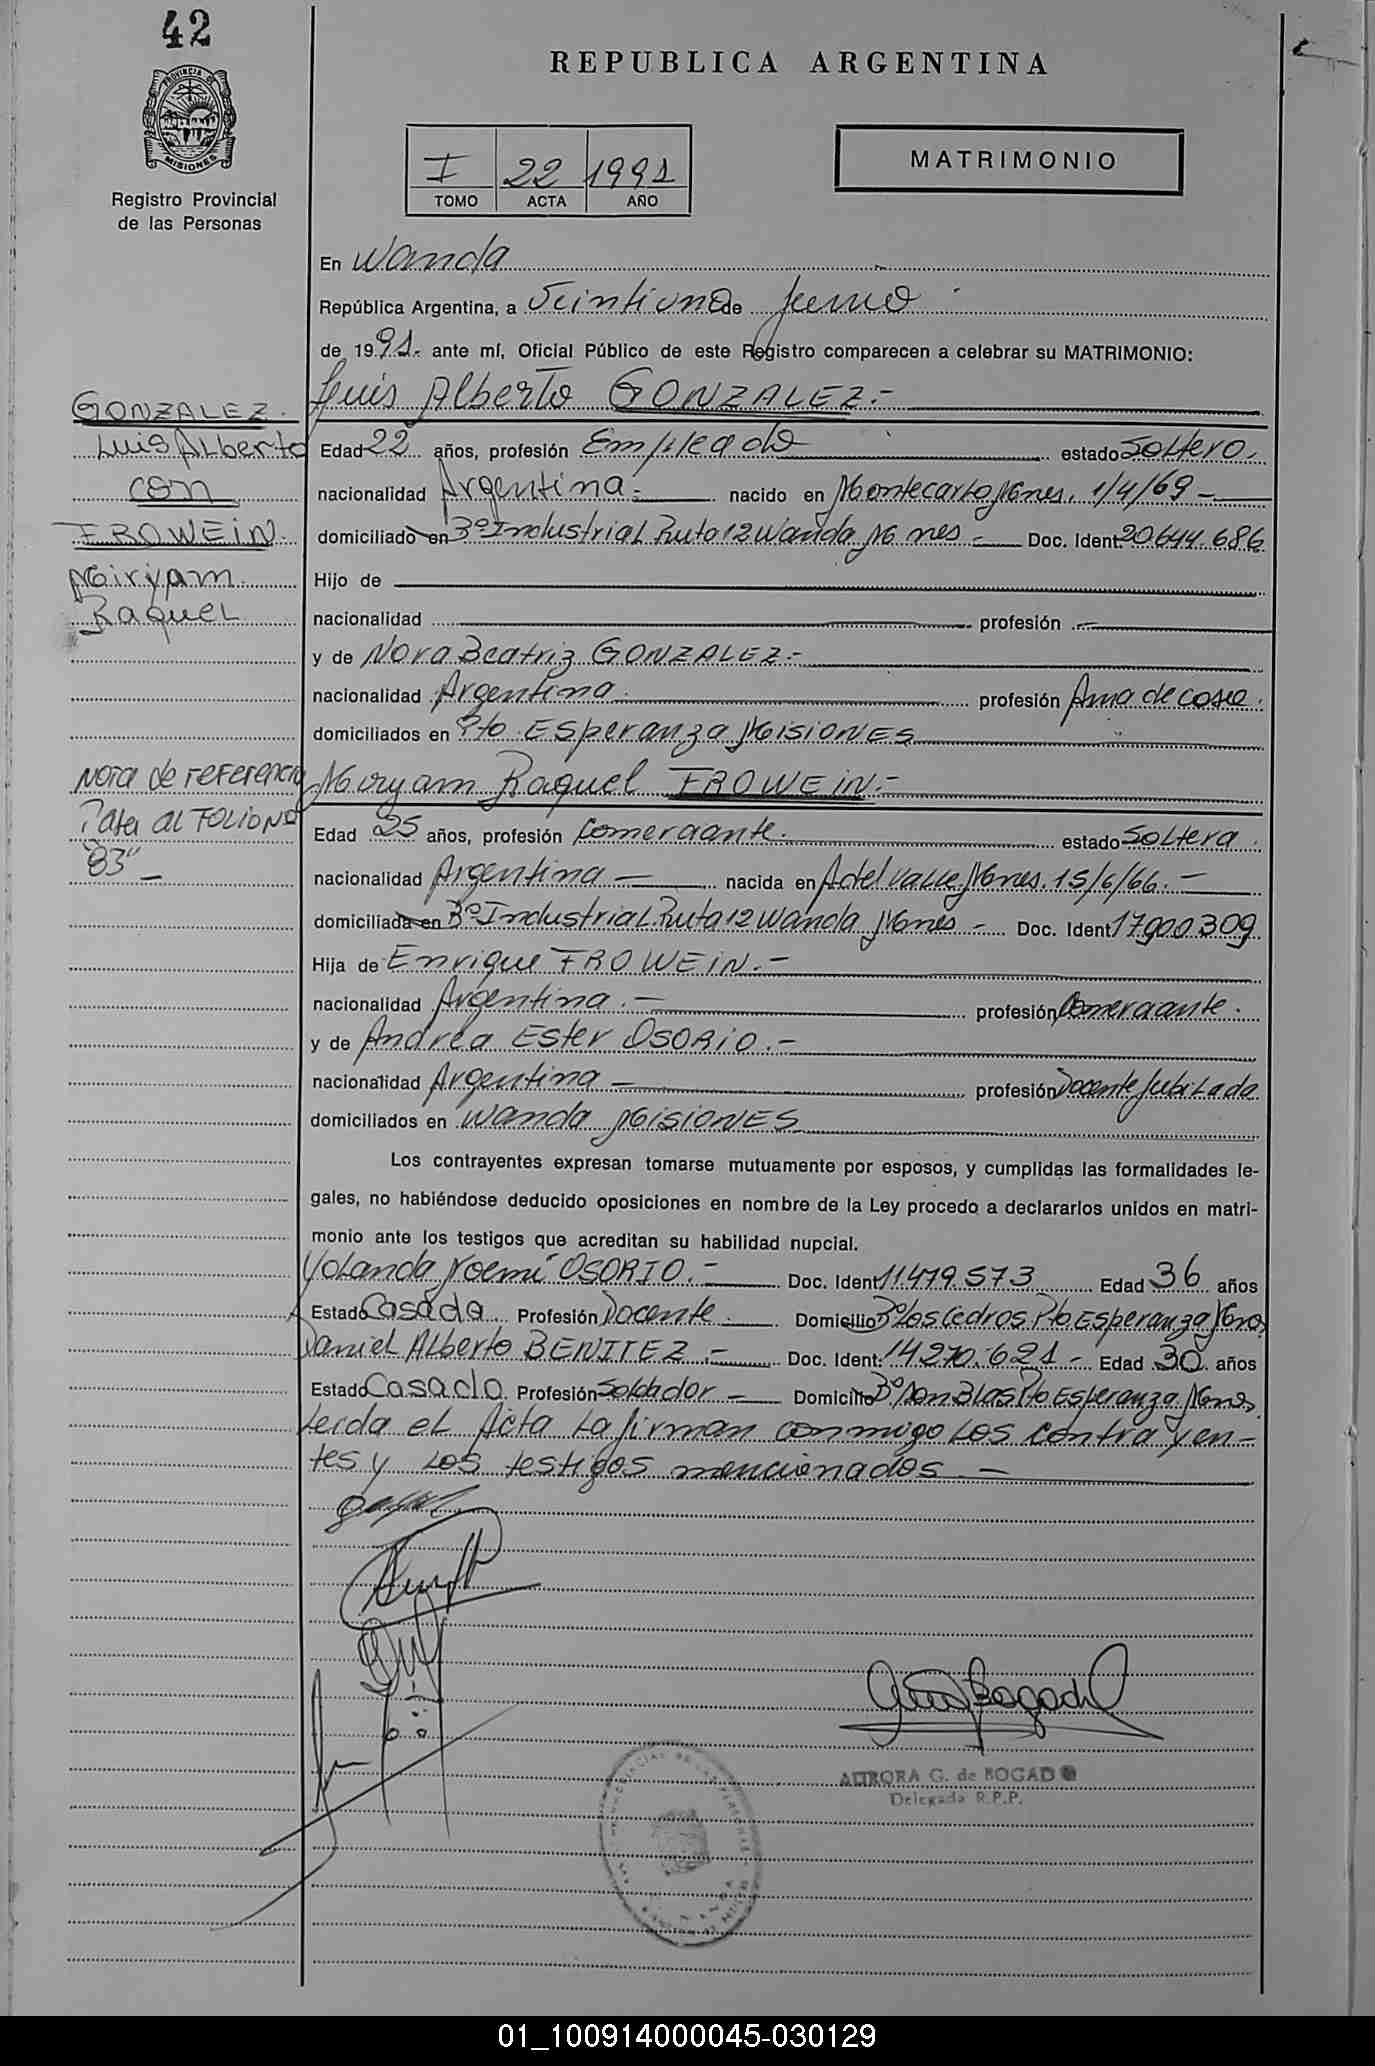 42
PROVINCIA DE
MISIONES
Registro Provincial
de las Personas
REPUBLICA ARGENTINA
I 22 1991
TOMO ACTA AÑO
MATRIMONIO
En Wanda
República Argentina, a Veintiuno de Junio
de 1991.- ante mí, Oficial Público de este Registro comparecen a celebrar su MATRIMONIO:
GONZALEZ.
Luis Alberto
con
FROWEIN.
Miryam
Raquel
Luis Alberto GONZALEZ.-
Edad 22 años, profesión Empleado estado Soltero.
nacionalidad Argentina.- nacido en Montecarlo Mnes. 1/4/69 -
domiciliado en Bº Industrial Ruta 12 Wanda Mnes - Doc. Ident. 20.644.686
Hijo de
nacionalidad profesión -
y de Nora Beatriz GONZALEZ.-
nacionalidad Argentina. profesión Ama de casa.
domiciliados en Pto Esperanza MISIONES
Nota de referencia
Pasa al FOLIO Nº
"83" -
Miryam Raquel FROWEIN.-
Edad 25 años, profesión Comerciante. estado Soltera.
nacionalidad Argentina - nacida en A. del Valle Mnes. 15/6/66. -
domiciliada en Bº Industrial Ruta 12 Wanda Mnes - Doc. Ident 17.900.309
Hija de Enrique FROWEIN.-
nacionalidad Argentina.- profesión Comerciante.
y de Andrea Ester OSORIO.-
nacionalidad Argentina - profesión Docente Jubilada
domiciliados en Wanda MISIONES
Los contrayentes expresan tomarse mutuamente por esposos, y cumplidas las formalidades le-
gales, no habiéndose deducido oposiciones en nombre de la Ley procedo a declararlos unidos en matri-
monio ante los testigos que acreditan su habilidad nupcial.
Yolanda Noemí OSORIO.- Doc. Ident. 11.479.573 Edad 36 años
Estado Casada Profesión Docente. Domicilio Bº Los Cedros Pto Esperanza Mnes
Daniel Alberto BENITEZ.- Doc. Ident: 14.270.621 - Edad 30 años
Estado Casado Profesión Soldador - Domicilio Bº Don Blas Pto Esperanza Mnes.
Leida el Acta la firman conmigo los contrayen-
tes y los testigos mencionados.-
AURORA G. de BOGADO
Delegada R.P.P.
01_100914000045-030129